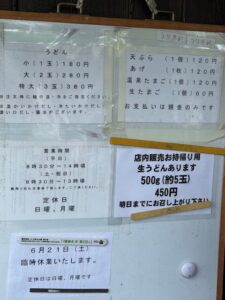 うどん
小(1玉)180円
大(2玉)280円
特大(3玉)380円
天ぷら(1個)120円
あげ(1枚)120円
温泉たまご(1個)120円
生たまご(1個)60円
お支払いは現金のみです
営業時間
(平日)
8時30分~14時頃
(土・祝日)
8時30分~13時頃
定休日
日曜、月曜
店内販売お持帰り用
生うどんあります
500g(約5玉)
450円
明日までにお召し上がり下さい
6月21日(土)
臨時休業いたします。
定休日は日曜、月曜です